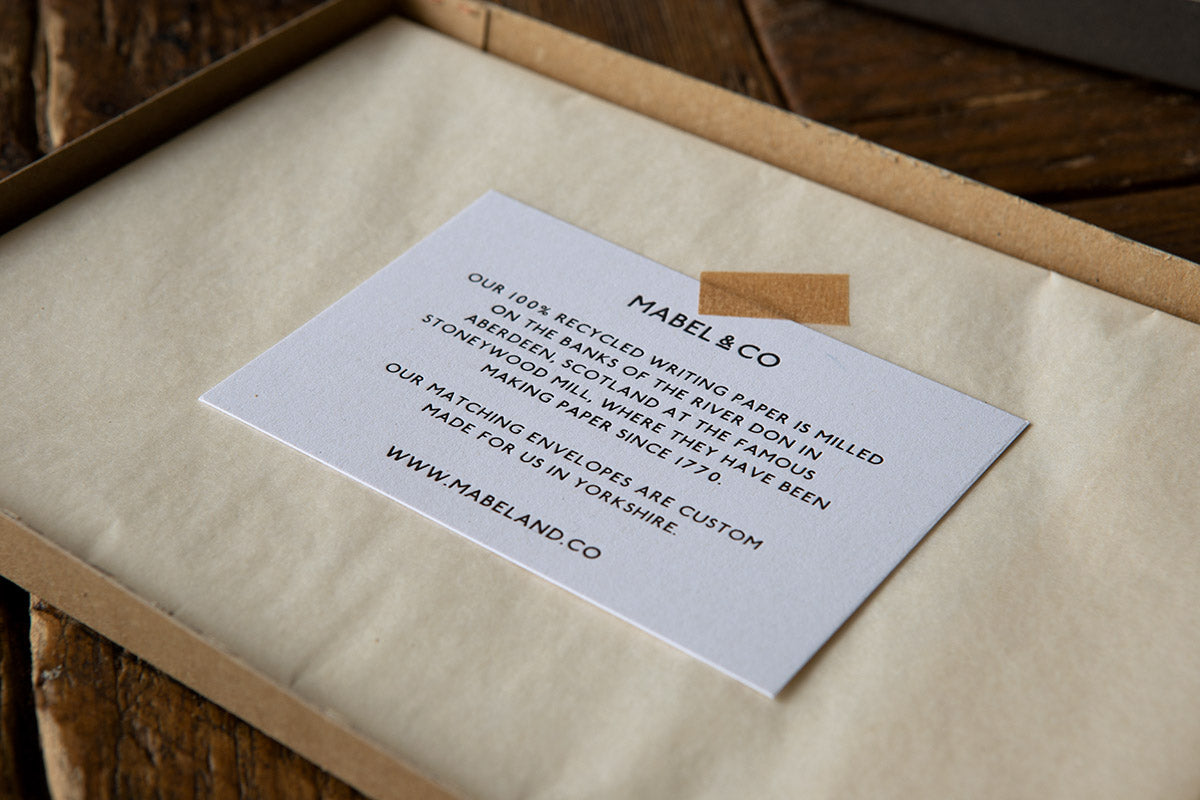 MABEL & CO
OUR 100% RECYCLED WRITING PAPER IS MILLED
ON THE BANKS OF THE RIVER DON IN
ABERDEEN, SCOTLAND AT THE FAMOUS
STONEYWOOD MILL, WHERE THEY HAVE BEEN
MAKING PAPER SINCE 1770.
OUR MATCHING ENVELOPES ARE CUSTOM
MADE FOR US IN YORKSHIRE.
WWW.MABELAND.CO